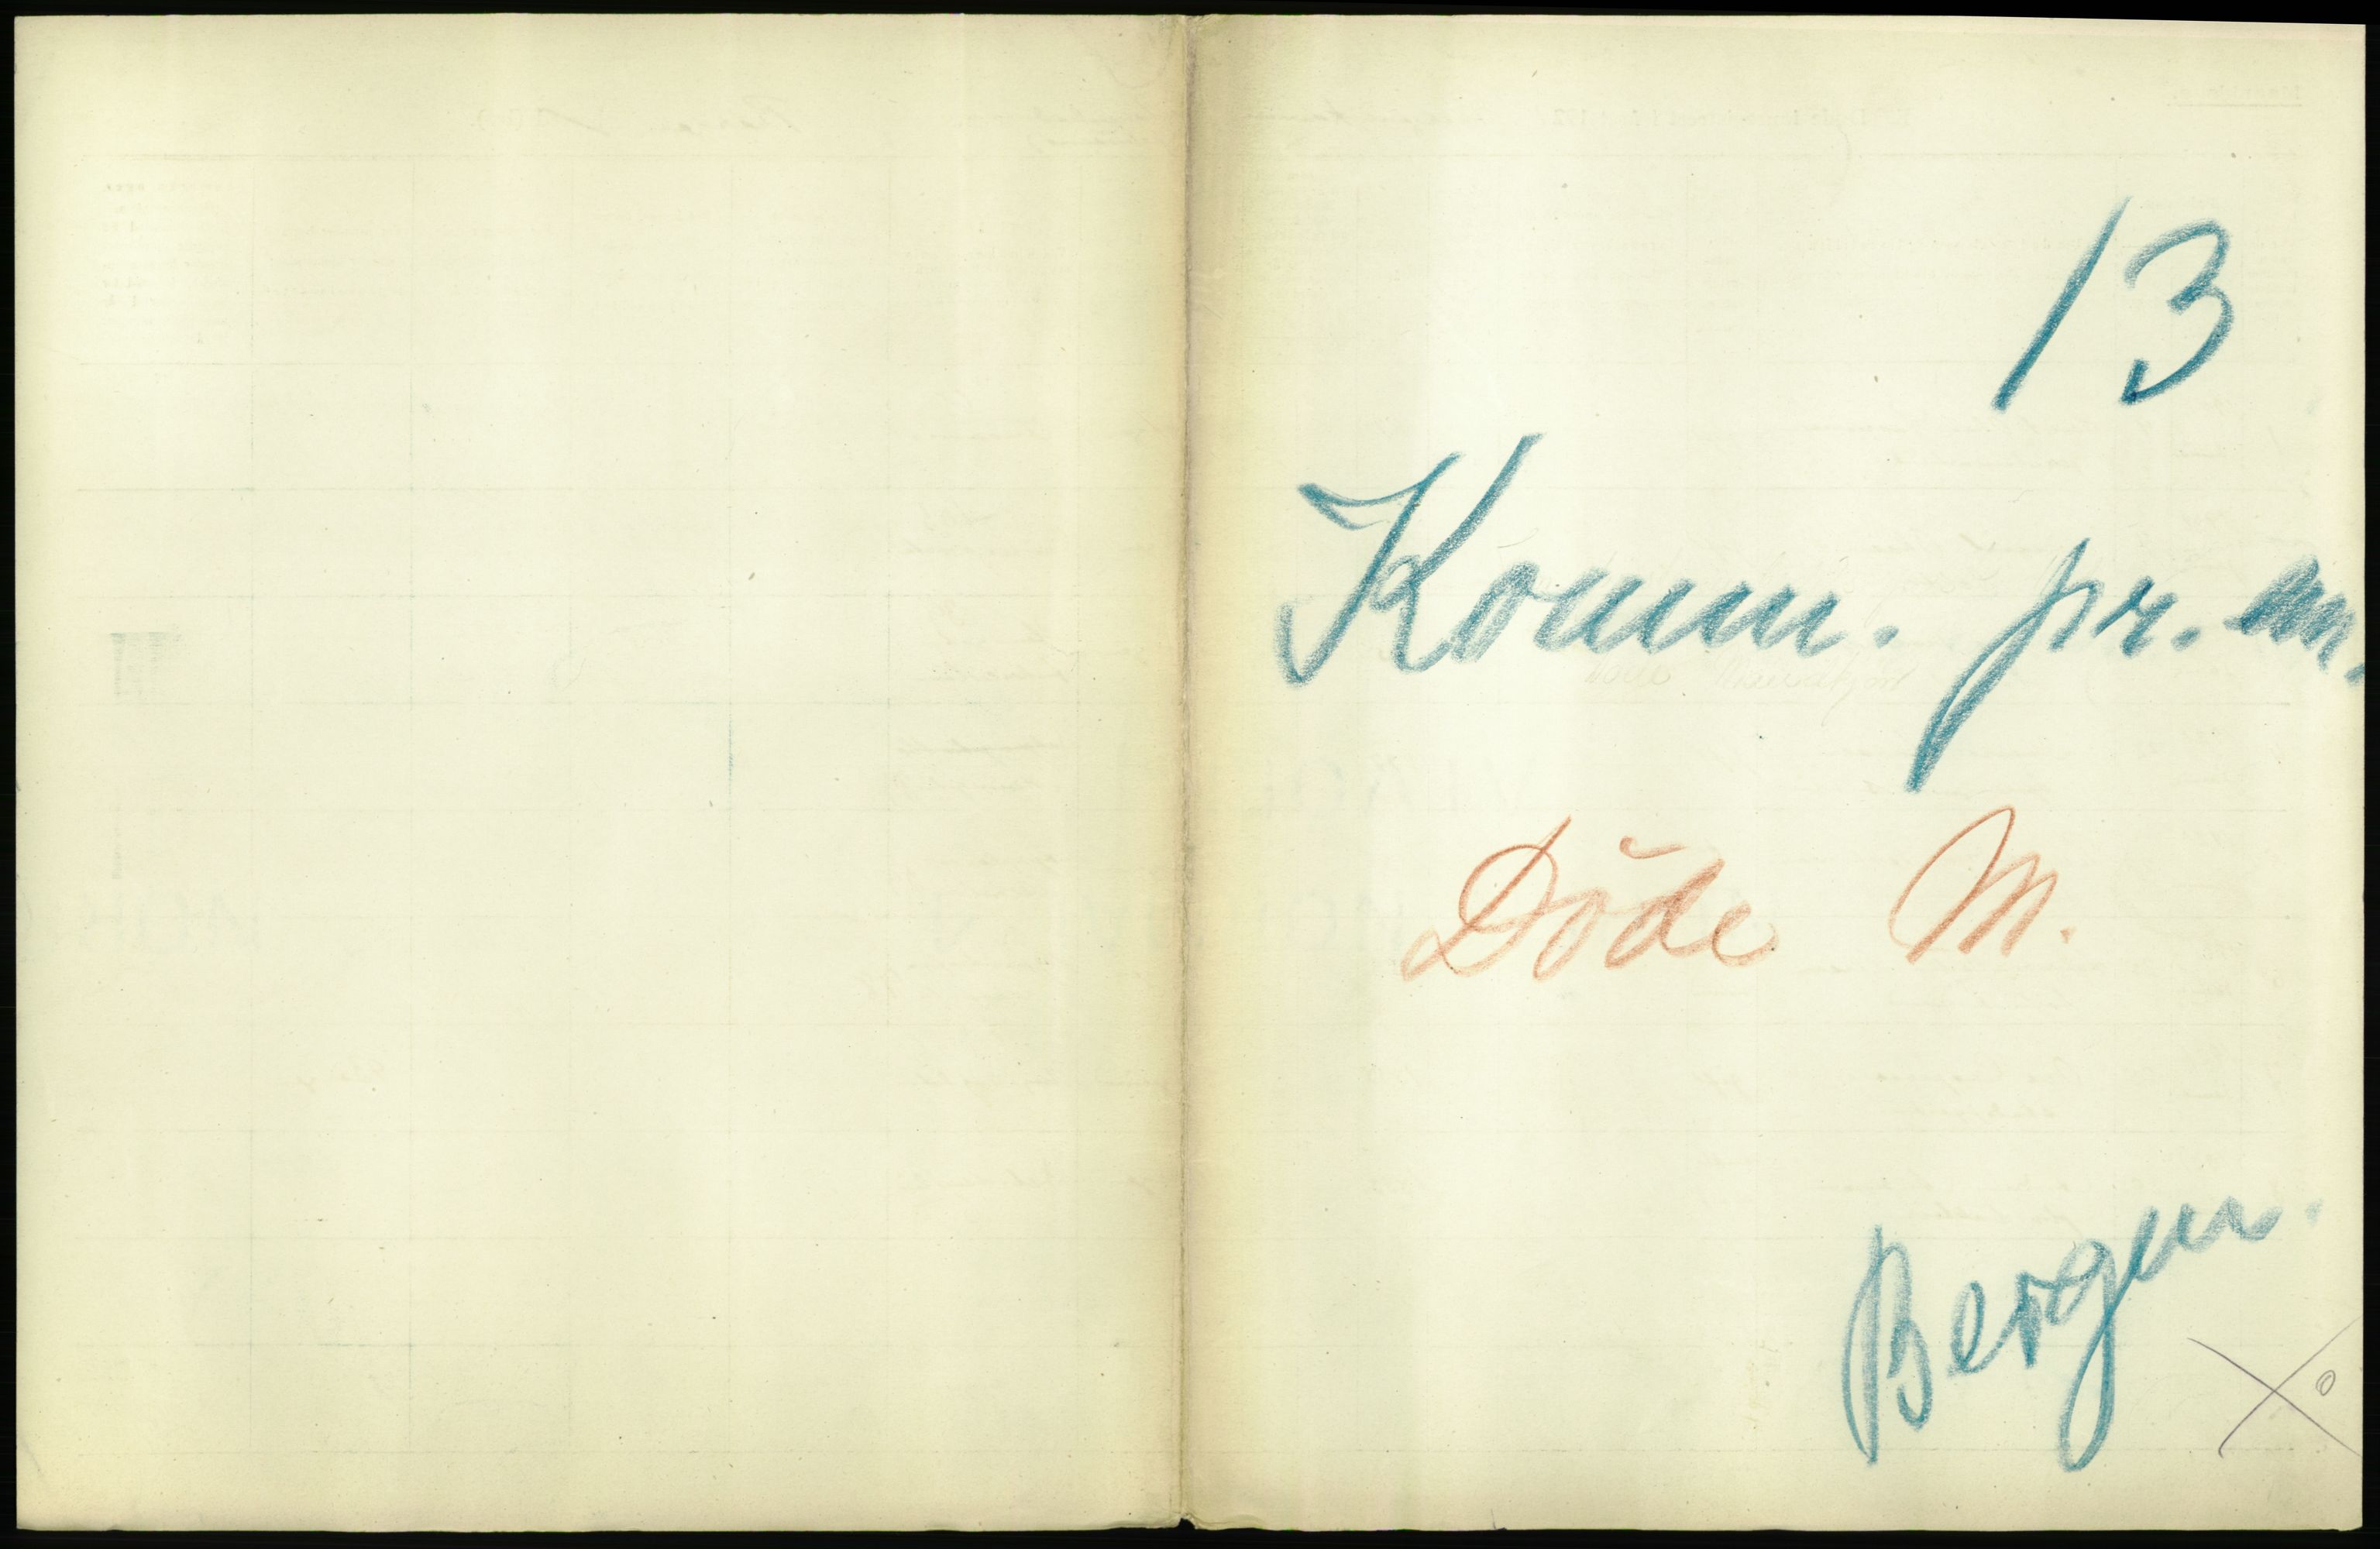 13
Komm. pr. an.
Döde M.
Bergen.